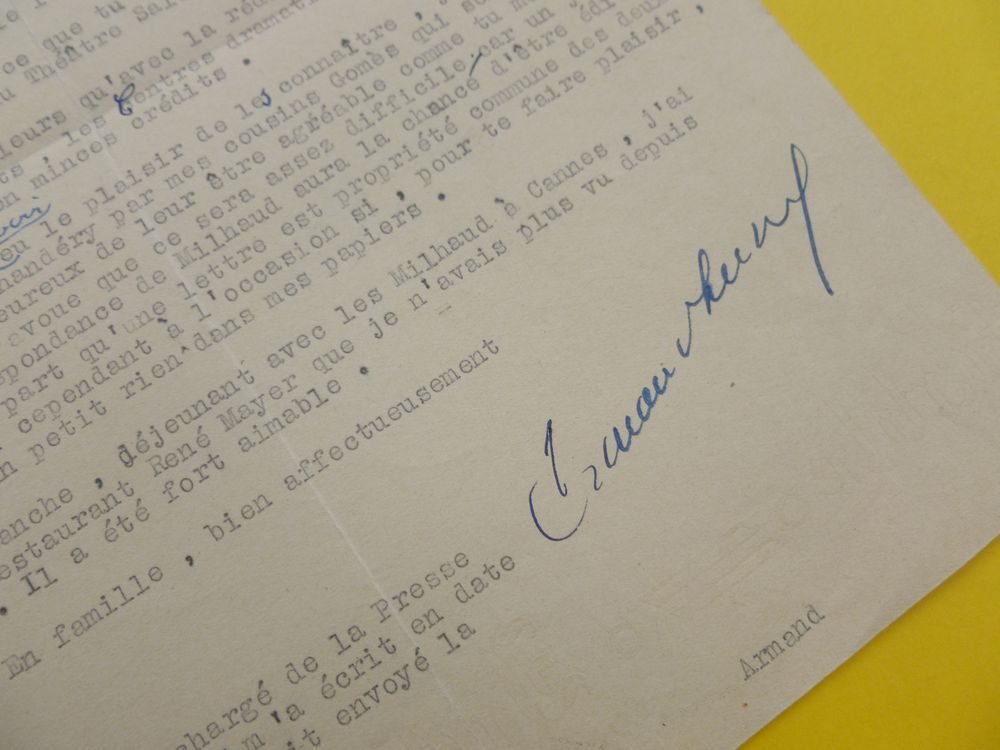 ce que tu
Théâtre
ieurs qu'avec la
ts, les Centres dramati
minces crédits.
eu le plaisir de les connaître,
par mes cousins Gomès qui
eureux de leur être agréable comme tu
avoue que ce sera assez difficile car un
pondance de Milhaud aura la chance d'être édi
part qu'une lettre est propriété commune des deux
cependant à l'occasion si, pour te faire plaisir,
n petit rien dans mes papiers.
anche, déjeunant avec les Milhaud à Cannes, j'ai
estaurant René Mayer que je n'avais plus vu depuis
. Il a été fort aimable.
En famille, bien affectueusement
Armand
chargé de la Presse
m'a écrit en date
it envoyé la